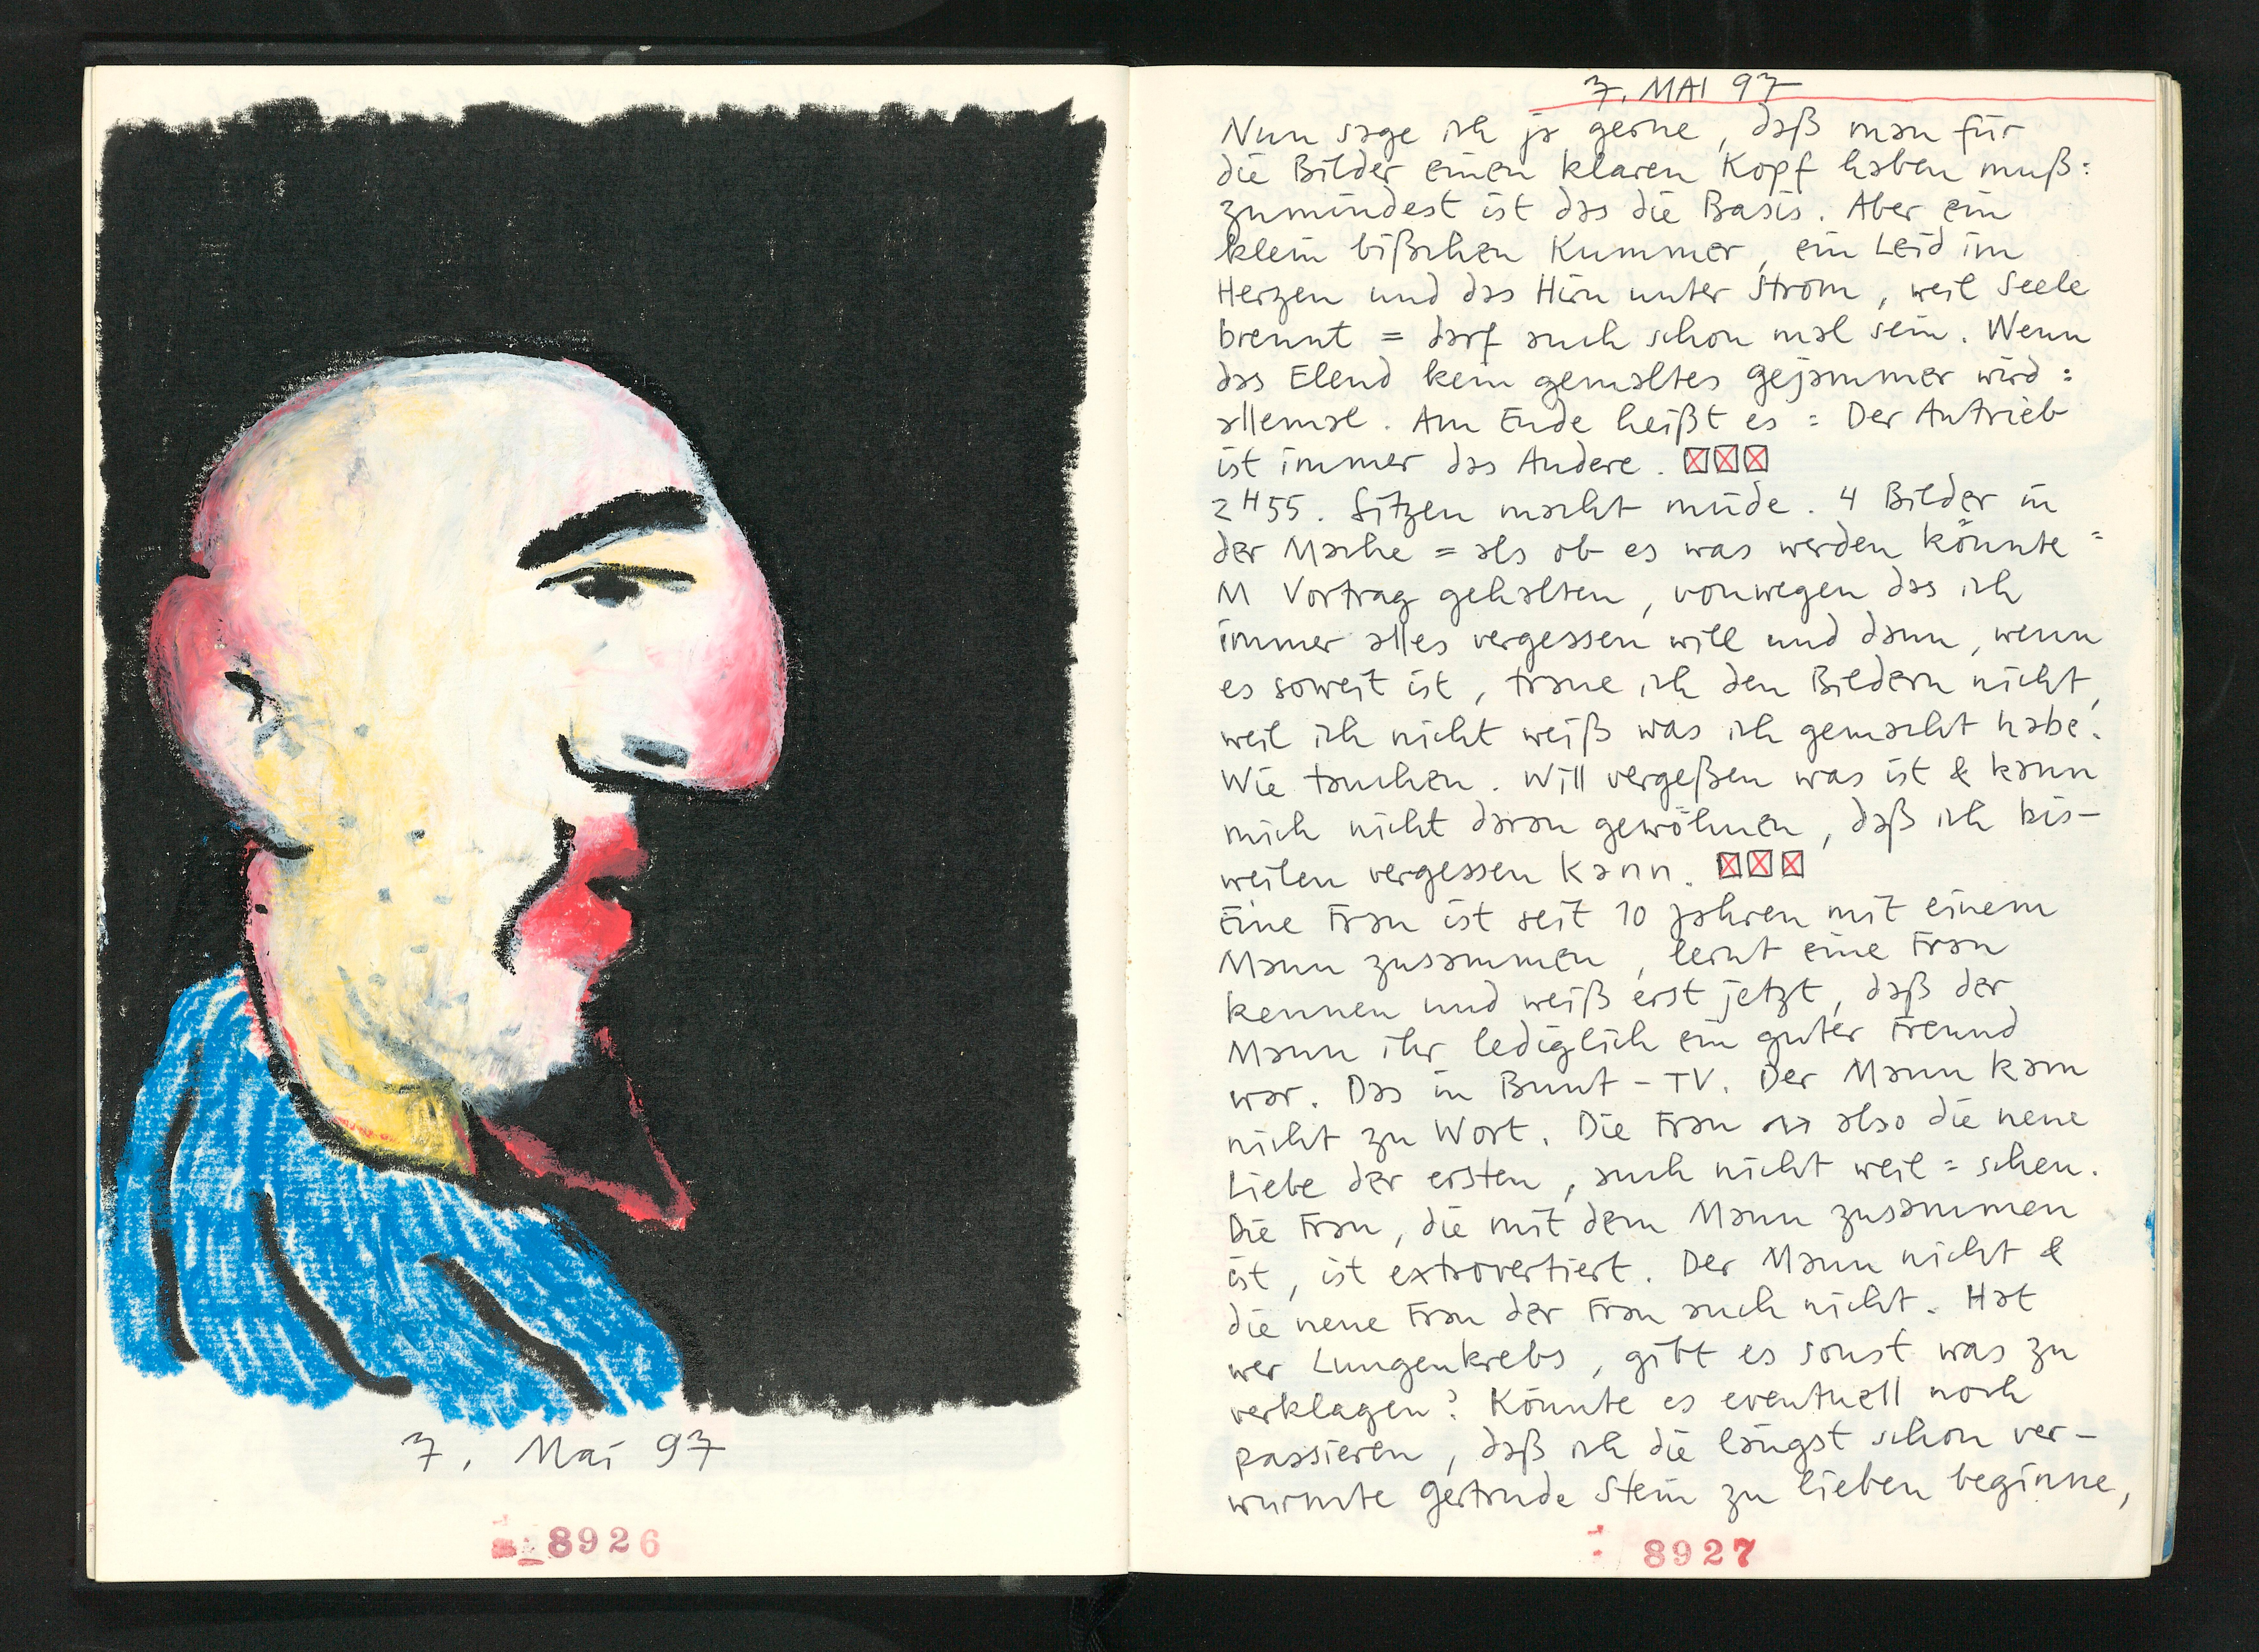 7. Mai 97
8926
7. MAI 97
Nun sage ich ja gerne, daß man für
die Bilder einen klaren Kopf haben muß:
zumindest ist das die Basis. Aber ein
klein bißchen Kummer, ein Leid im
Herzen und das Hirn unter Strom, weil Seele
brennt = darf auch schon mal sein. Wenn
das Elend kein gemaltes gejammer wird:
allemal. Am Ende heißt es: Der Antrieb
ist immer das Andere.
2H55. Sitzen macht müde. 4 Bilder in
der Mache = als ob es was werden könnte =
M Vortrag gehalten, vonwegen das ich
immer alles vergessen will und dann, wenn
es soweit ist, traue ich den Bildern nicht,
weil ich nicht weiß was ich gemacht habe.
Wie tauchen. Will vergeßen was ist & kann
mich nicht daran gewöhnen, daß ich bis-
weilen vergessen kann.
Eine Frau ist seit 10 Jahren mit einem
Mann zusammen, lernt eine Frau
kennen und weiß erst jetzt, daß der
Mann ihr lediglich ein guter Freund
war. Das in Bunt-TV. Der Mann kam
nicht zu Wort. Die Frau also die neue
Liebe der ersten, auch nicht weil = scheu.
Die Frau, die mit dem Mann zusammen
ist, ist extrovertiert. Der Mann nicht &
die neue Frau der Frau auch nicht. Hat
wer Lungenkrebs, gibt es sonst was zu
verklagen? Könnte es eventuell noch
passieren, daß ich die längst schon ver-
wurmte Gertrude Stein zu lieben beginne,
8927